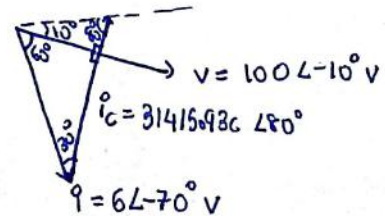 10° 80°
60°
v = 100∠-10° v
i̊c = 31415.93c ∠80°
30°
9 = 6∠-70° v